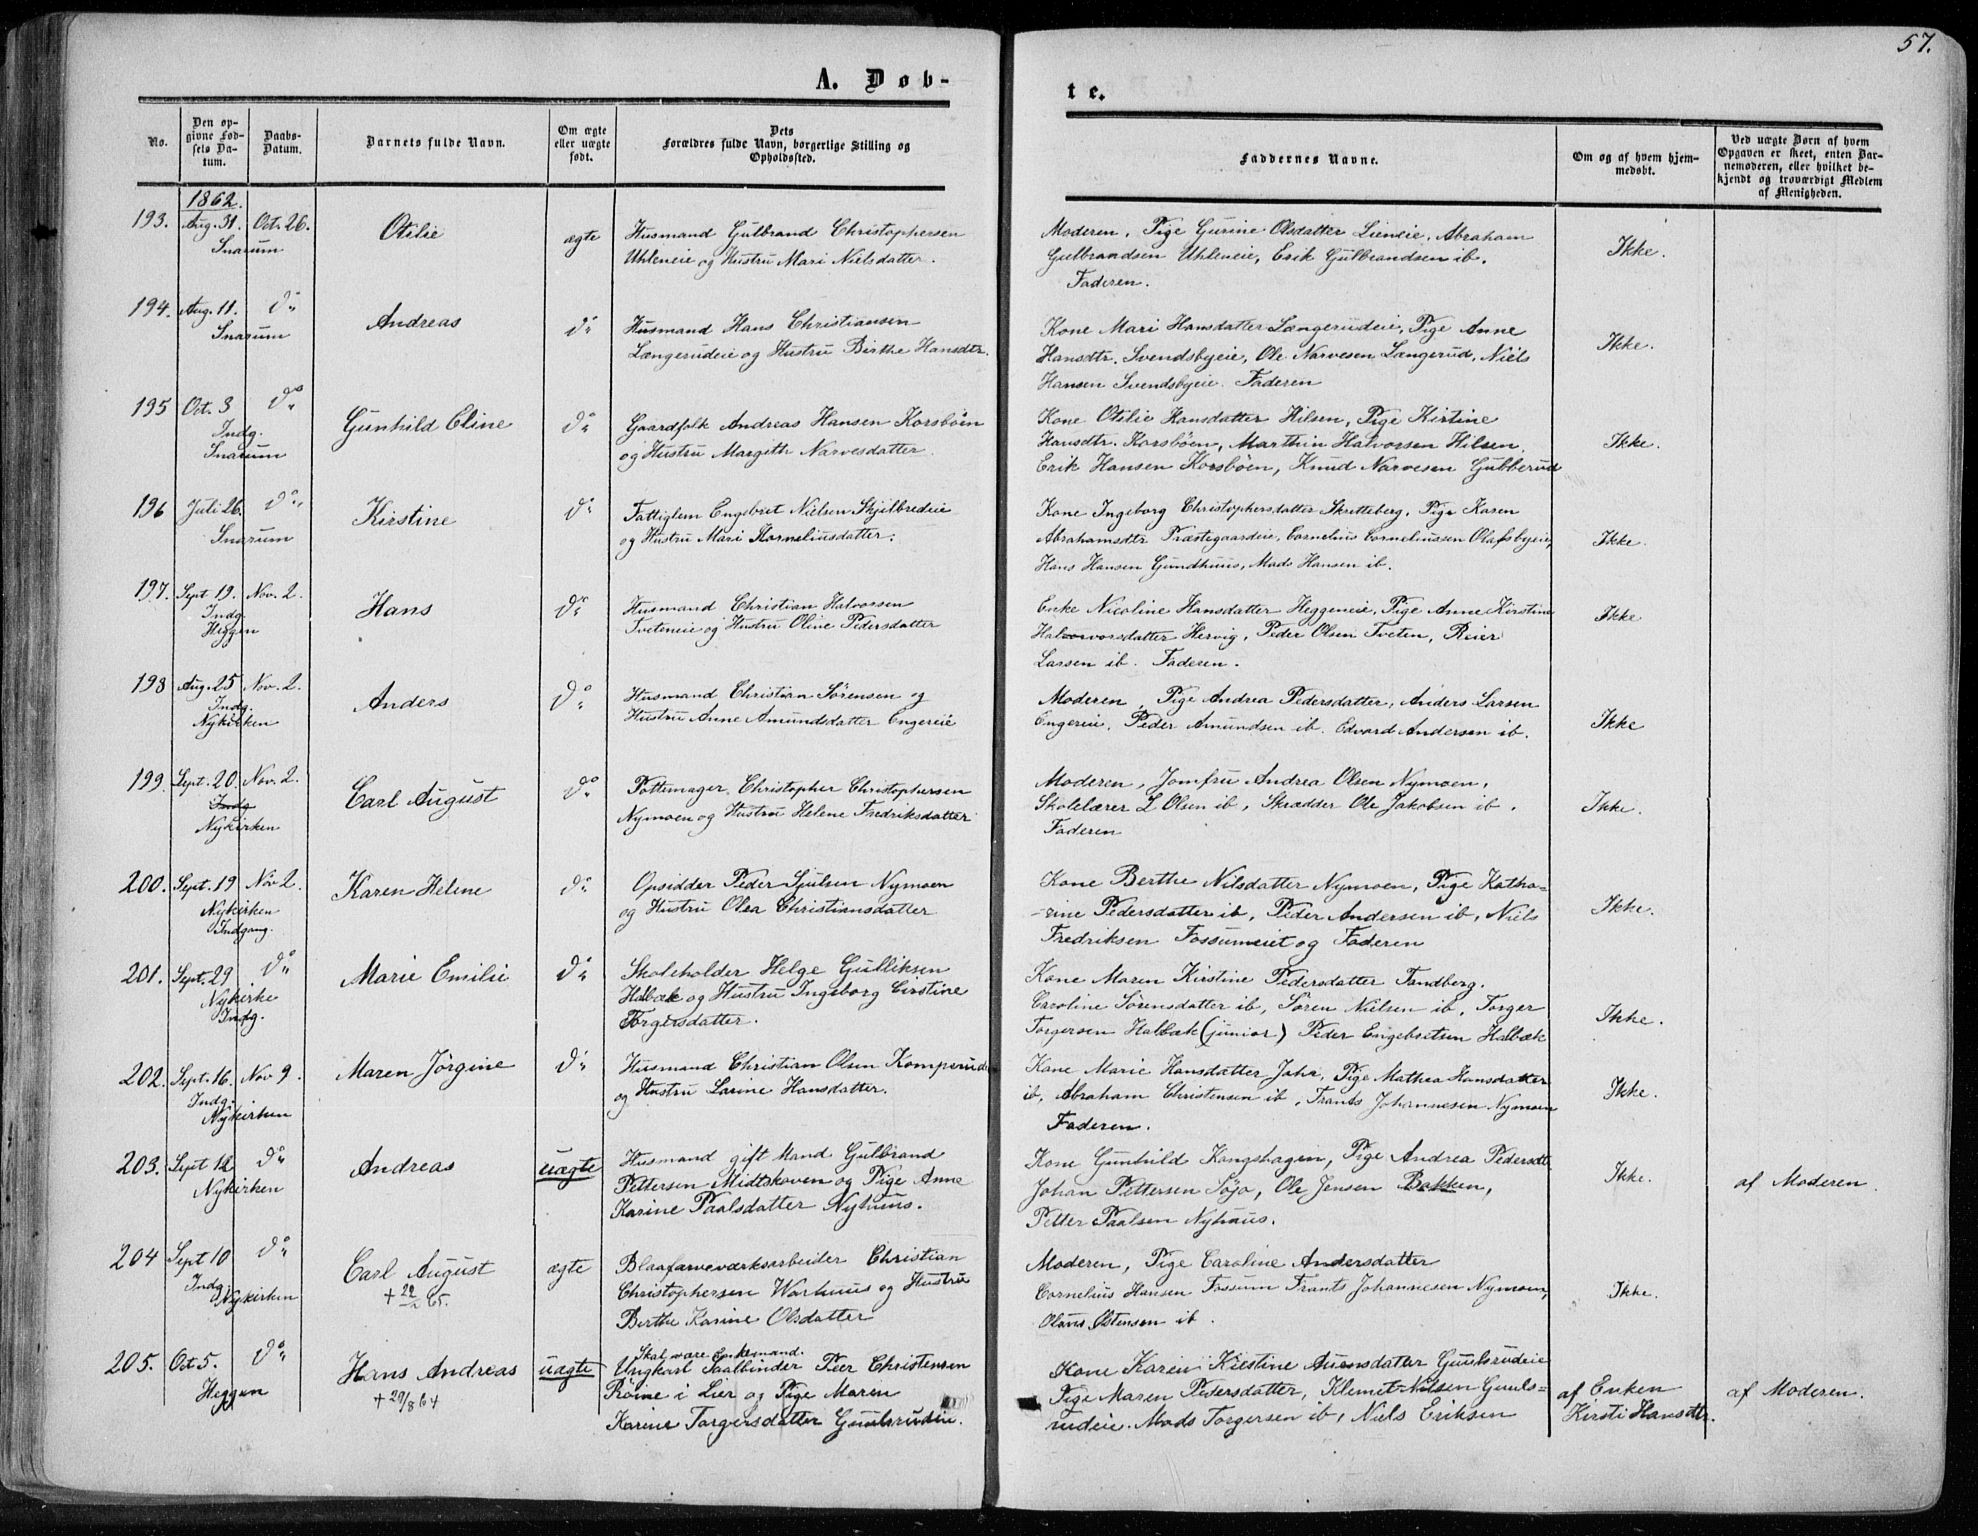 57.
A. Døb-
te.
No.
Den op-
givne Fød-
sels Da-
tum.
Daabs-
Datum.
Barnets fulde Navn.
Om ægte
eller uægte
født.
Dets
Forældres fulde Navn, borgerlige Stilling og
Opholdssted.
Faddernes Navne.
Om og af hvem hjem-
medøbt.
Ved uægte Børn af hvem
Opgaven er skeet, enten Bar-
nemoderen, eller hvilket be-
kjendt og troværdigt Medlem
af Menigheden.
1862.
193. Aug. 31. Oct. 26.
Snarum
Otilie
ægte
Husmand Gulbrand Christophersen
Uhleneie og Hustru Mari Nielsdatter.
Moderen, Pige Gurine Olsdatter Lieneie, Abraham
Gulbrandsen Uhleneie, Erik Gulbrandsen ib.
Faderen.
Ikke.
194. Aug. 11. do
Snarum
Andreas
do
Husmand Hans Christiansen
Længerudeie og Hustru Birthe Hansdtr.
Kone Mari Hansdatter Længerudeie, Pige Anne
Hansdtr. Svendsbyeie, Ole Narvesen Længerud, Niels
Hansen Svendsbyeie. Faderen
Ikke.
195 Oct. 3 do
Indg.
Snarum
Gunhild Eline
do
Gaardfolk Andreas Hansen Korsbøen
og Hustru Margith Narvesdatter.
Kone Otilie Hansdatter Hilsen, Pige Kirtine
Hansdtr. Korsbøen, Marthin Halvorsen Hilsen.
Erik Hansen Korsbøen, Knud Narvesen Gubberud
Ikke.
196 Juli 26. do
Snarum
Kirstine
do
Fattiglem Engebret Nielsen Skjilbredeie
og Hustru Mari Korneliusdatter.
Kone Ingeborg Christophersdatter Skretteberg, Pige Karen
Abrahamsdtr Præstegaardeie, Cornelius Corneliussen Olafsbyeie,
Hans Hansen Gundhuus, Mads Hansen ib.
Ikke.
197. Sept 19. Nov. 2.
Indg.
Heggen
Hans
do
Husmand Christian Halvorsen
Tveteneie og Hustru Oline Pedersdatter
Enke Nicoline Hansdatter Heggeneie, Pige Anne Kirstine
Halvorsdatter Hervig, Peder Olsen Tveten, Reier
Larsen ib. Faderen.
Ikke
198 Aug. 25 Nov. 2.
Indg.
Nykirken
Anders
do
Husmand Christian Sørensen og
Hustru Anne Amundsdatter Engereie
Moderen, Pige Andrea Pedersdatter, Anders Larsen
Engereie, Peder Amundsen ib. Edvard Andersen ib.
Ikke
199 Sept. 20. Nov. 2.
Indg
Nykirken
Carl August
do
Pottemager Christopher Christophersen
Nymoen og Hustru Helene Fredriksdatter
Moderen, Jomfru Andrea Olsen Nymoen,
Skolelærer L Olsen ib, Skrædder Ole Jakobsen ib,
Faderen
Ikke.
200. Sept. 19 Nov 2.
Nykirken
Indgang.
Karen Helene
do
Opsidder Peder Sjulsen Nymoen
og Hustru Olea Christiansdatter
Kone Berthe Nilsdatter Nymoen, Pige Katha-
-rine Pedersdatter ib, Peder Andersen ib, Niels
Fredriksen Fossumeiet og Faderen
Ikke.
201. Sept. 29 do
Nykirke
Indg.
Marie Emilie
do
Skoleholder Helge Gulliksen
Halbæk og Hustru Ingeborg Cirstine
Torgersdatter.
Kone Maren Kirstine Pedersdatter Tandberg.
Caroline Sørensdatter ib, Søren Nielsen ib, Torger
Torgersen Halbæk (junior) Peder Engebretsen Halbæk
Ikke.
202. Sept. 16. Nov 9.
Indg.
Nykirken
Maren Jørgine
do
Husmand Christian Olsen Komperud
og Hustru Larine Hansdatter.
Kone Marie Hansdatter Jahr, Pige Mathea Hansdatter
ib, Abraham Christensen ib, Frants Johannesen Nymoen
Faderen.
Ikke.
203. Sept 12 do
Nykirken
Andreas
uægte
Husmand gift Mand Gulbrand
Pettersen Midtskoven og Pige Anne
Karine Paalsdatter Nyhuus.
Kone Gunhild Kongshagen, Pige Andrea Pedersdt
Johan Pettersen Søjo, Ole Jensen Bakken,
Petter Paalsen Nyhuus.
Ikke.
af Moderen.
204 Sept 10 do
Indg.
Nykirken
Carl August
+ 22 65.
ægte
Blaafarveværksarbeider Christian
Christophersen Warhuus og Hustru
Berthe Karine Olsdatter
Moderen, Pige Caroline Andersdatter
Cornelius Hansen Fossum Frants Johannesen Nymoen,
Olavus Østensen ib.
Ikke.
205. Oct 5. do
Heggen
Hans Andreas
+ 29/8 64
uægte
Skal være Enkemand.
Ungkarl Saalbinder Peer Christensen
i Lier og Pige Maren
Karine Torgersdatter Guulsrudeie.
Kone Karen Kirstine Auensdatter Guulsrudeie
Pige Maren Pedersdatter, Klemet Nilsen Guuls-
rudeie. Mads Torgersen ib, Niels Eriksen
af Enken
Kirsti Hansdtr.
af Moderen.